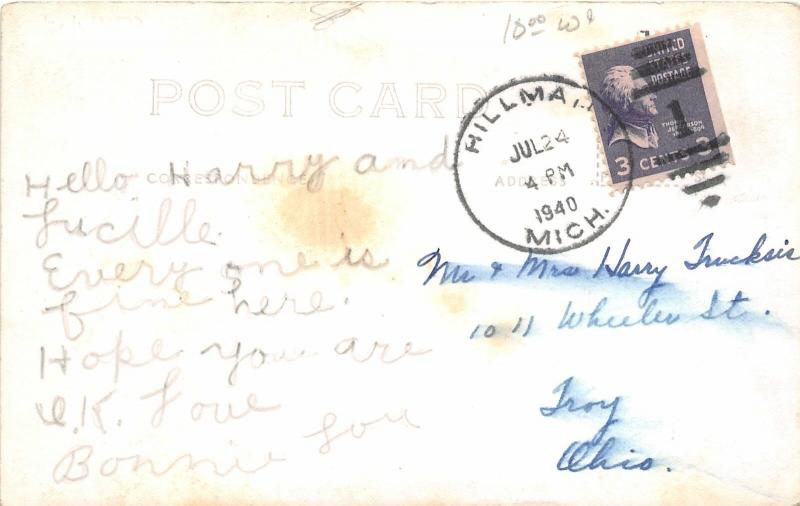 10.00
POST CARD
HILLMAN
JUL 24
4 PM
1940
MICH.
UNITED
STATES
POSTAGE
1
THOMAS
JEFFERSON
3 CENTS 3
CORRESPONDENCE
ADDRESS
Hello Harry and
Lucille.
Every one is
fine here.
Hope you are
O.K. Love
Bonnie Lou
Mr & Mrs Harry Trucksis
1011 Wheeler St.
Troy
Ohio.